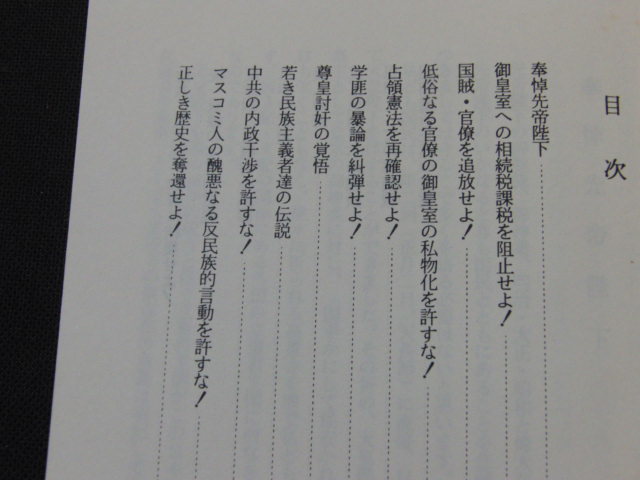 目次
奉悼先帝陛下
御皇室への相続税課税を阻止せよ！
国賊・官僚を追放せよ！
低俗なる官僚の御皇室の私物化を許すな！
占領憲法を再確認せよ！
学匪の暴論を糾弾せよ！
尊皇討奸の覚悟
若き民族主義者達の伝説
中共の内政干渉を許すな！
マスコミ人の醜悪なる反民族的言動を許すな！
正しき歴史を奪還せよ！